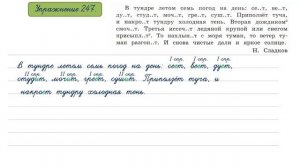 Упражнение 247
В тундре летом семь погод на день: се..т, ве..т,
ду..т, студ..т, моч..т, гре..т, суш..т. Приползёт ту-
ча, и накро..т тундру холодная тень. Вторая дождиком
смоч..т. Третья иссеч..т ледяной крупой или снегом
присыпл..т. То нахлын..т с моря туман, то ветер ту-
ман разгон..т. И снова чистые дали и яркое солнце.
Н. Сладков
I спр. I спр. I спр.
В тундре летом семь погод на день: сеет, веет, дует,
II спр. II спр. I спр. II спр.
студит, мочит, греет, сушит. Приползёт туча, и
накроет тундру холодная тень.